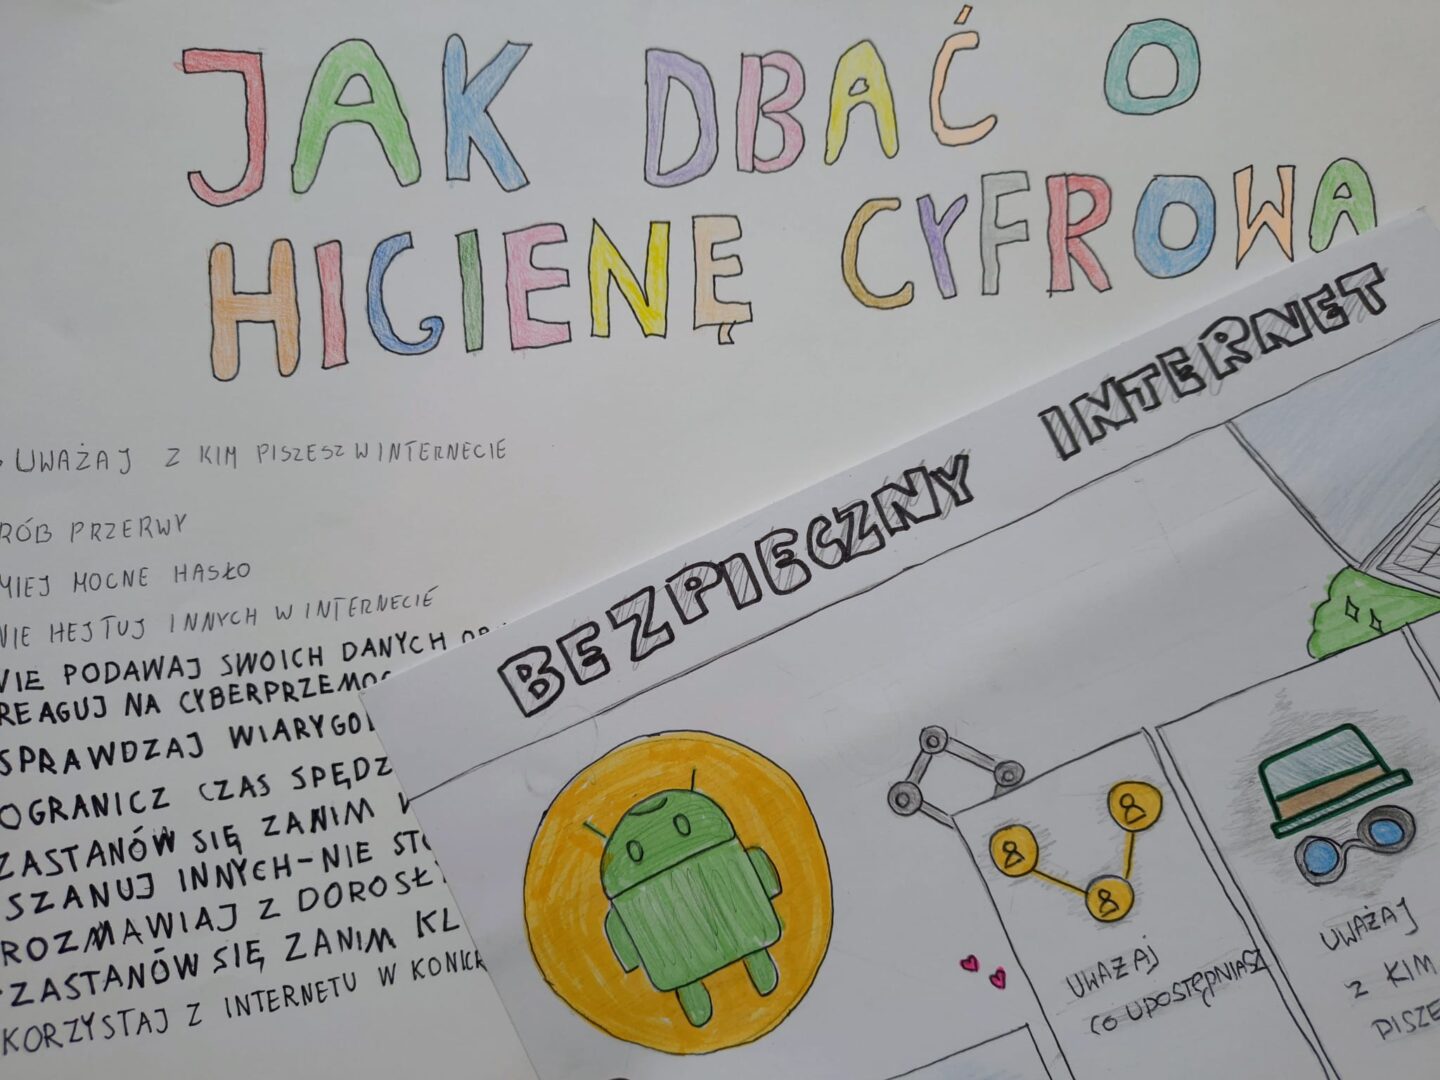 JAK DBAĆ O
HIGIENĘ CYFROWA
UWAŻAJ Z KIM PISZESZ W INTERNECIE
RÓB PRZERWY
MIEJ MOCNE HASŁO
NIE HEJTUJ INNYCH W INTERNECIE
NIE PODAWAJ SWOICH DANYCH
REAGUJ NA
SPRAWDZAJ
OGRANICZ CZAS
ZASTANÓW SIĘ ZANIM
SZANUJ INNYCH-NIE
ROZMAWIAJ Z
ZASTANÓW SIĘ ZANIM
KORZYSTAJ Z INTERNETU W
BEZPIECZNY INTERNET
UWAZAJ
CO UDOSTĘPNIASZ
UWAŻAJ
Z KIM